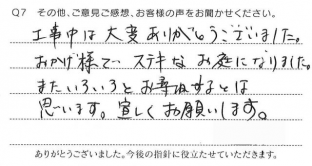 Q7 その他、ご意見ご感想、お客様の声をお聞かせください。
工事中は大変ありがとうございました。
おかげ様で、ステキなお庭になりました。
またいろいろとお尋ねするとは
思います。宜しくお願いします。
ありがとうございました。今後の指針に役立たせていただきます。